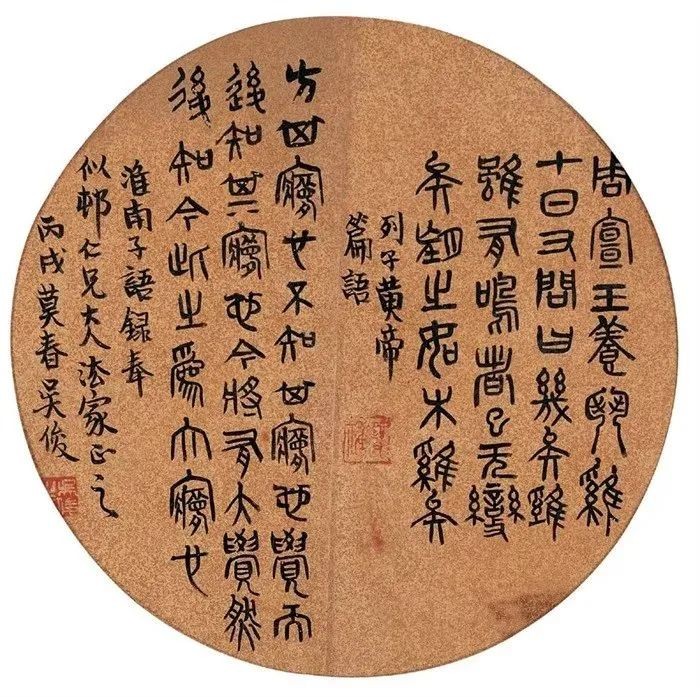 周宣王養鬥雞
十日又問曰幾矣雞
雖有鳴者已无變
矣望之如木雞矣
列子黃帝
篇語
方其夢也不知其夢也覺而
後知其夢也今將有大覺然
後知今此之為大夢也
淮南子語錄奉
似邨仁兄大人法家正之
丙戌莫春吳俊